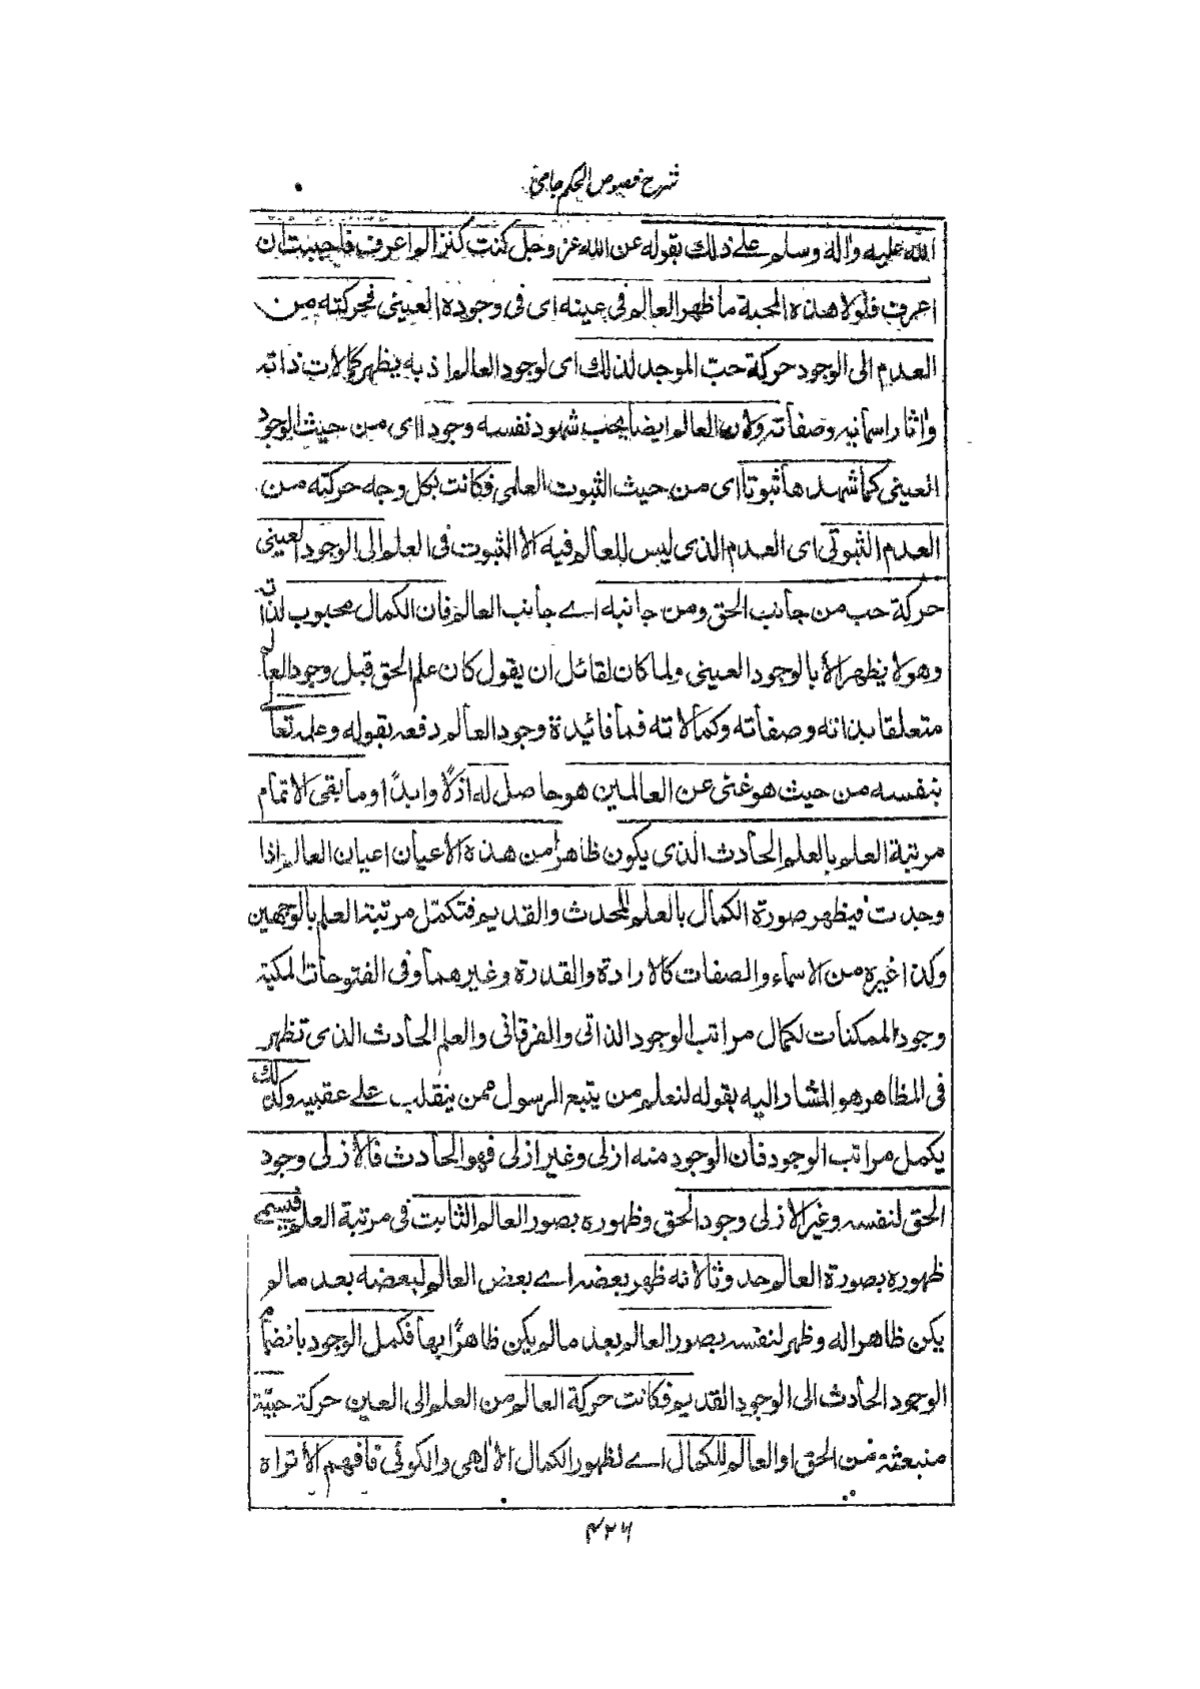 شرح فصوص الحكم جامى
الله عليه واله وسلم على ذلك بقوله عن الله عز وجل كنت كنزا لم اعرف فاحببت ان
اعرف فلولا هذه المحبة ما ظهر العالم فى عينه اى فى وجوده العينى فحركته من
العدم الى الوجود حركة حب الموجد لذلك اى لوجود العالم اذ به يظهر كمالات ذاته
واثار اسمائيه وصفاته ولان العالم ايضا يحب شهود نفسه وجودا اى من حيث الوجود
العينى كما شهدها ثبوتا اى من حيث الثبوت العلمى فكانت بكل وجه حركته من
العدم الثبوتى اى العدم الذى ليس للعالم فيه الا الثبوت فى العلم الى الوجود العينى
حركة حب من جانب الحق ومن جانبه اے جانب العالم فان الكمال محبوب لذاته
وهو لا يظهر الا بالوجود العينى ولما كان لقائل ان يقول كان علم الحق قبل وجود العالم
متعلقا بذاته وصفاته وكمالاته فما فائيدة وجود العالم دفعه بقوله وعلمه تعا
بنفسه من حيث هو غنى عن العالمين هو حاصل له ازلًا وابدًا وما بقى الا تمام
مرتبة العلم بالعلم الحادث الذى يكون ظاهرا من هذه الأعيان اعيان العالم اذا
وجدت فيظهر صورة الكمال بالعلم المحدث والقديم فتكمل مرتبة العلم بالوجهين
وكذا غيره من الاسماء والصفات كالارادة والقدرة وغيرهما وفى الفتوحات المكية
وجود الممكنات لكمال مراتب الوجود الذاتى والفرقانى والعلم الحادث الذى تظهر
فى المظاهر هو المشار اليه بقوله لنعلم من يتبع الرسول ممن ينقلب على عقبيه وكذلك
يكمل مراتب الوجود فان الوجود منه ازلى وغير ازلى فهو الحادث فالازلى وجود
الحق لنفسه وغير الازلى وجود الحق وظهوره بصور العالم الثابت فى مرتبة العلم فيسمى
ظهوره بصورة العالم حدوثا لانه ظهر بعضه اے بعض العالم لبعضه بعد ما لم
يكن ظاهرا له وظهر لنفسه بصور العالم بعد ما لم يكن ظاهرًا بها فكمل الوجود بانضمام
الوجود الحادث الى الوجود القديم فكانت حركة العالم من العلم الى العين حركة حبيّة
منبعثة من الحق او العالم للكمال اے لظهور الكمال الالهى والكونى فافهم الا تراه
۴۲۶